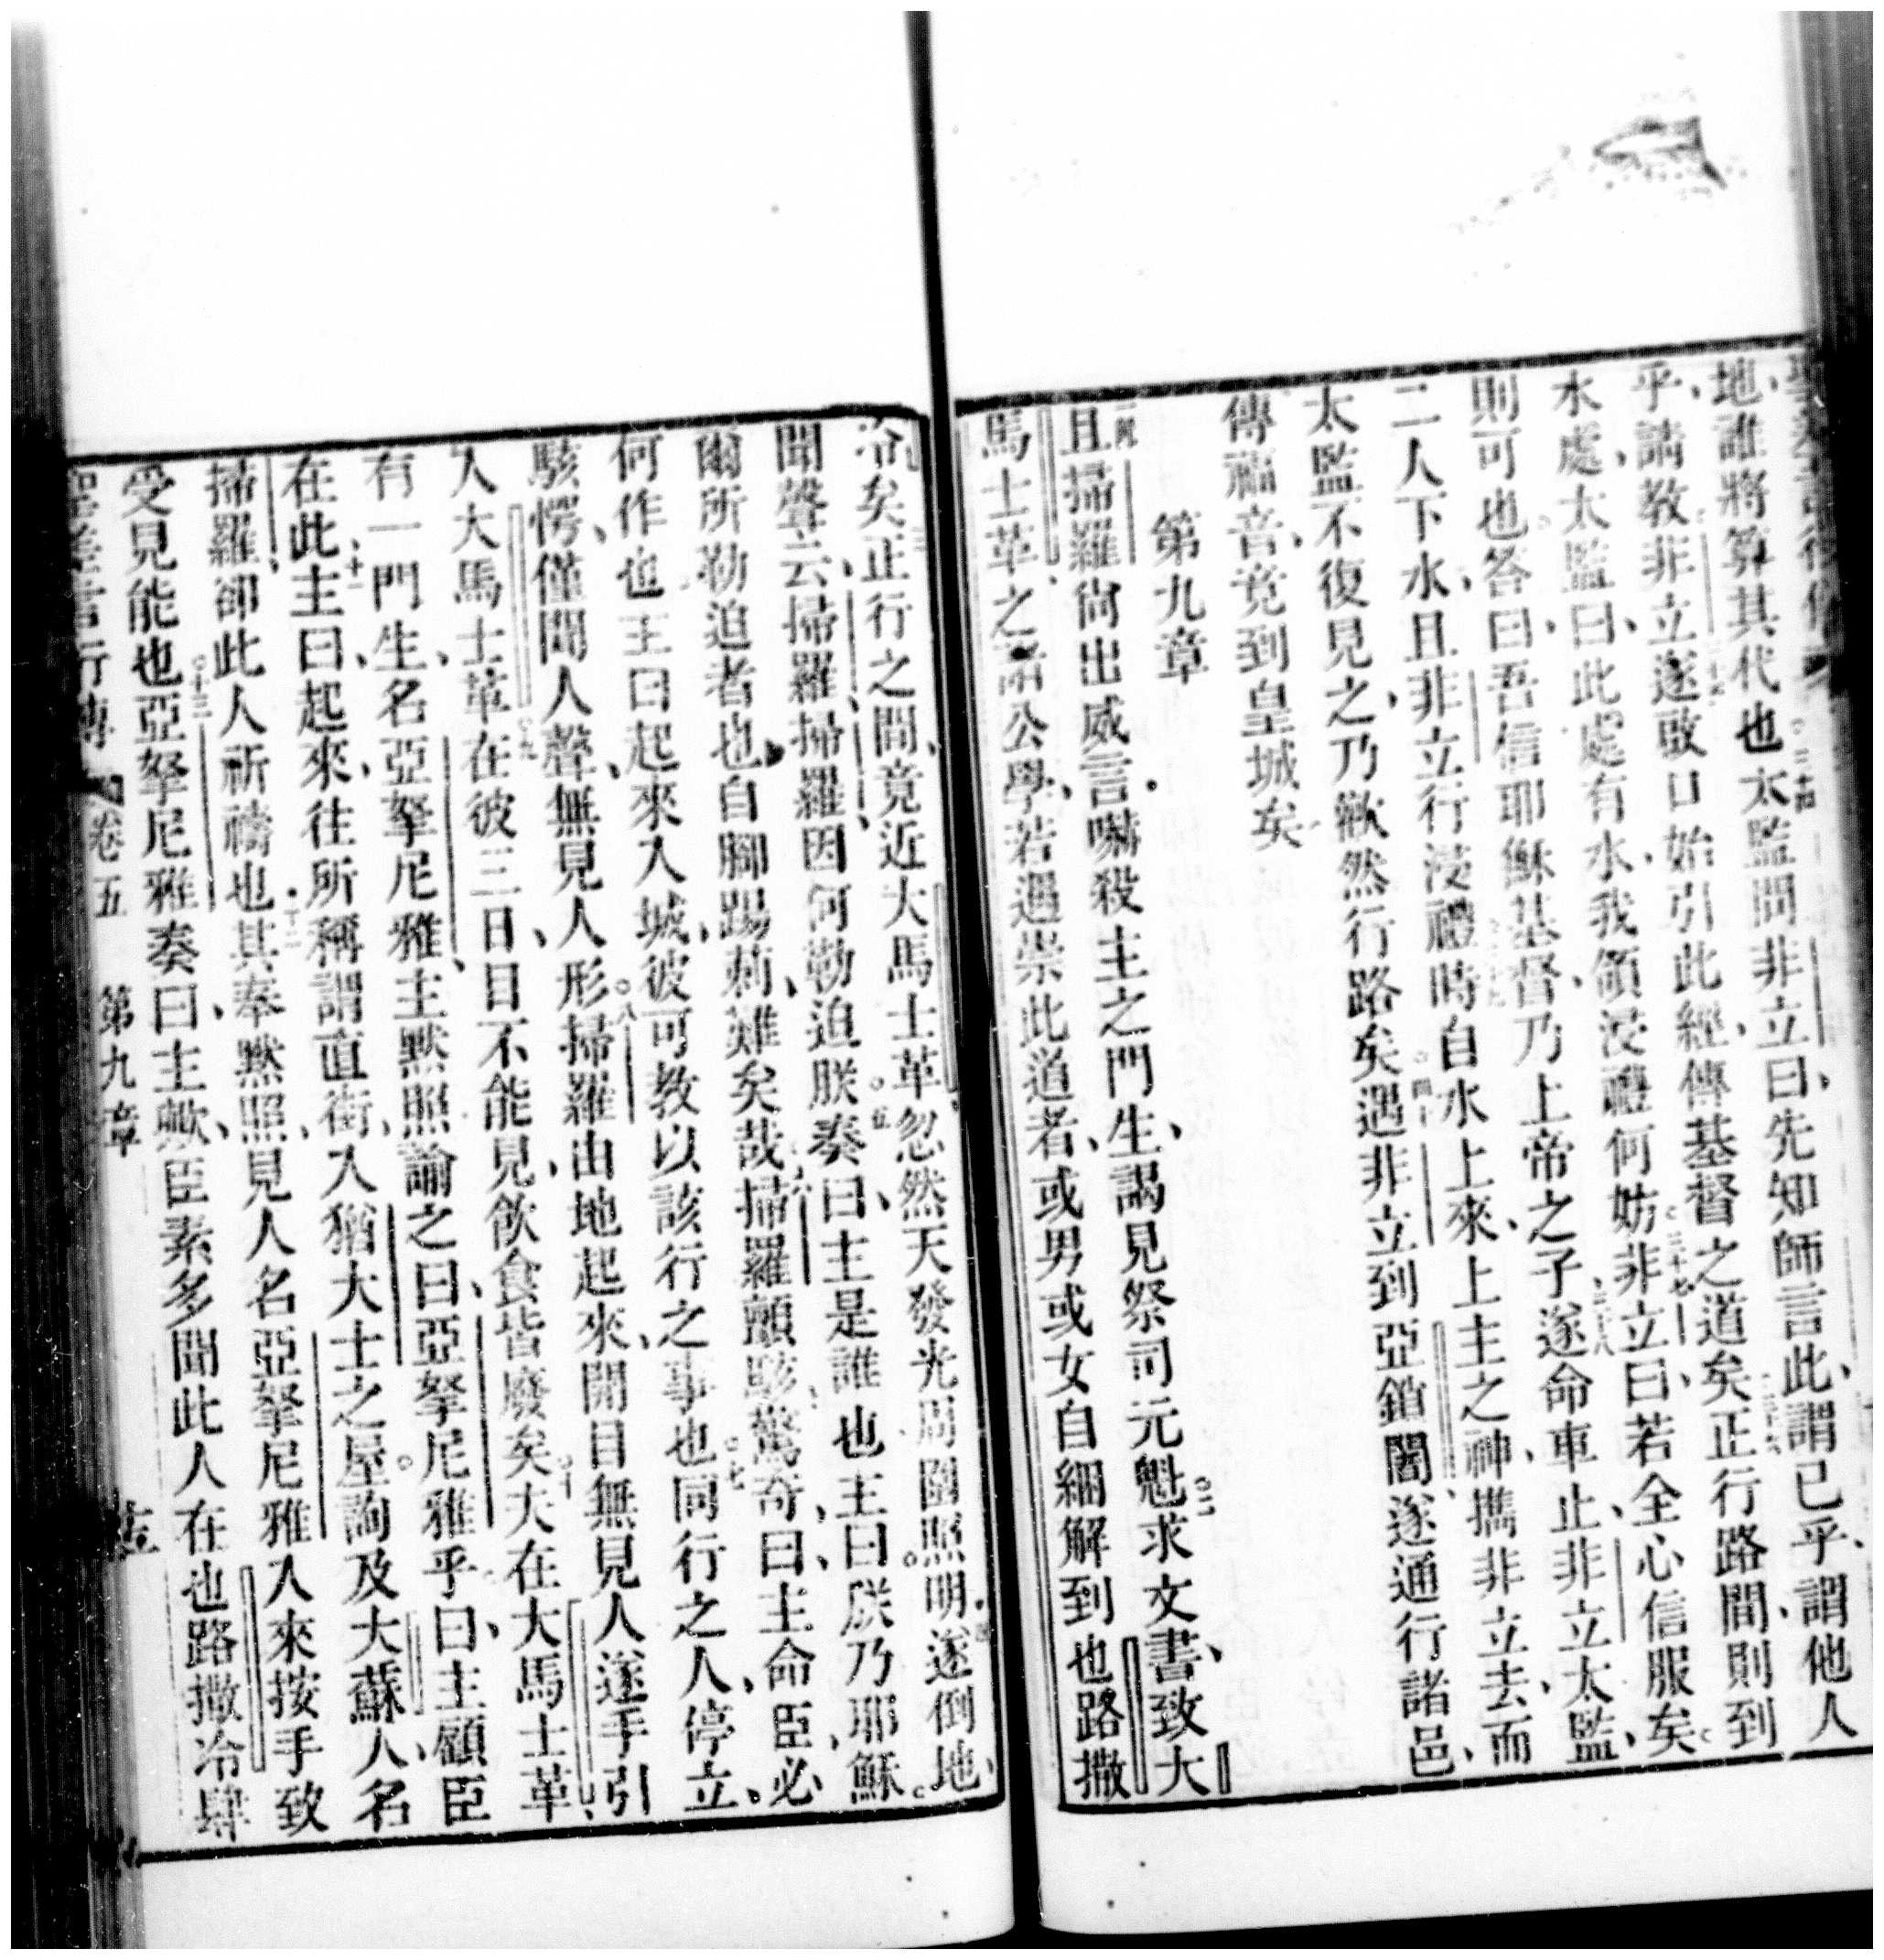 地誰將算其代也太監問非立曰先知師言此謂已乎謂他人
乎請教非立遂啟口始引此經傳基督之道矣正行路間則到
水處太監曰此處有水我領浸禮何妨非立曰若全心信服矣
則可也答曰吾信耶穌基督乃上帝之子遂命車止非立太監
二人下水且非立行浸禮時自水上來上主之神攜非立去而
太監不復見之乃歡然行路矣遇非立到亞鎖闍遂通行諸邑
傳福音竟到皇城矣
第九章
且掃羅尙出威言嚇殺主之門生謁見祭司元魁求文書致大
馬士革之諸公學若遇崇此道者或男或女自綑解到也路撒
冷矣正行之間竟近大馬士革忽然天發光周圍照明遂倒地
聞聲云掃羅掃羅因何勒迫朕奏曰主是誰也主曰朕乃耶穌
爾所勒迫者也自腳踢刺難矣哉掃羅顫駭驚奇曰主命臣必
何作也主曰起來入城彼可教以該行之事也同行之人停立
駭愕僅聞人聲無見人形掃羅由地起來開目無見人遂手引
入大馬士革在彼三日目不能見飲食皆廢矣夫在大馬士革
有一門生名亞拏尼雅主默照諭之曰亞拏尼雅乎曰主顧臣
在此主曰起來往所稱謂直街入猶大士之屋詢及大蘇人名
掃羅卻此人祈禱也其奉默照見人名亞拏尼雅入來按手致
受見能也亞拏尼雅奏曰主歟臣素多聞此人在也路撒冷肆
行傳 卷五 第九章